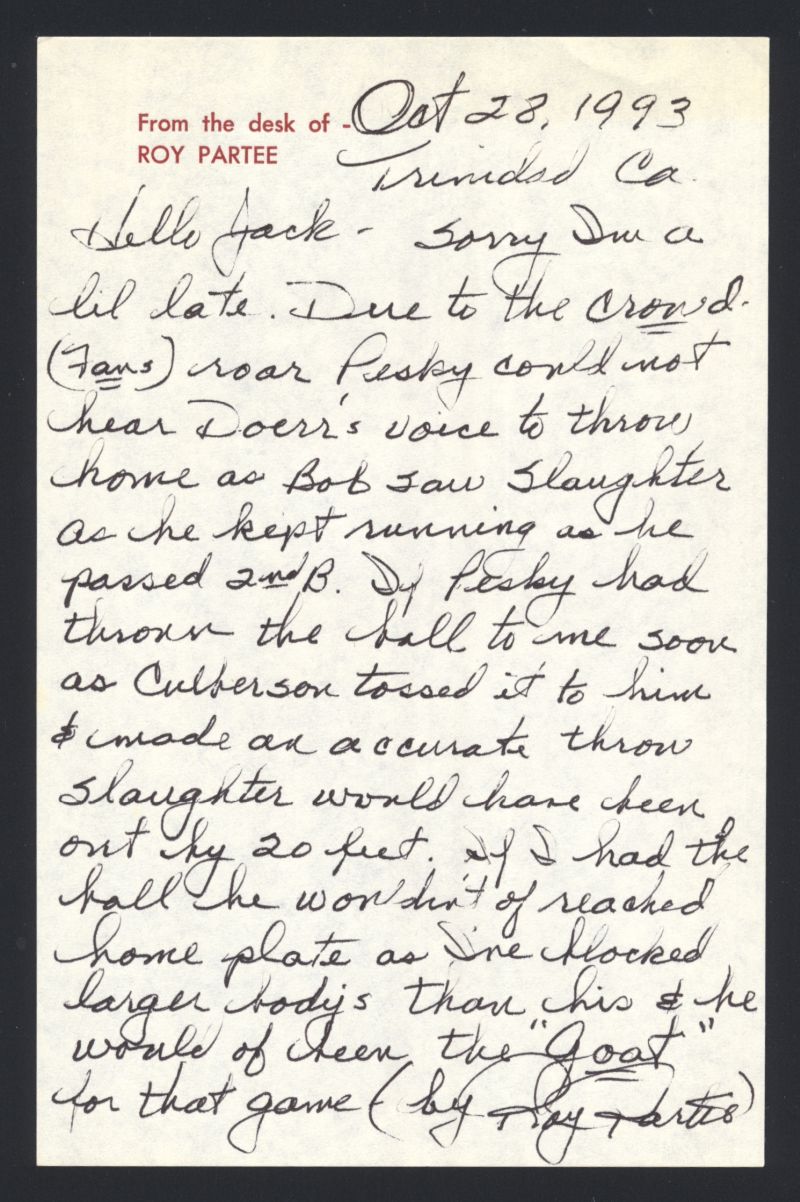 From the desk of - Oct 28, 1993
ROY PARTEE
Trinidad Ca.
Hello Jack - Sorry I'm a
lil late. Due to the crowd.
(Fans) roar Pesky could not
hear Doerr's voice to throw
home as Bob saw Slaughter
as he kept running as he
passed 2nd B. If Pesky had
thrown the ball to me soon
as Culberson tossed it to him
& made an accurate throw
Slaughter would have been
out by 20 feet. If I had the
ball he wouldn't of reached
home plate as I've blocked
larger bodys than his & he
would of been the "Goat"
for that game (by Roy Partee)